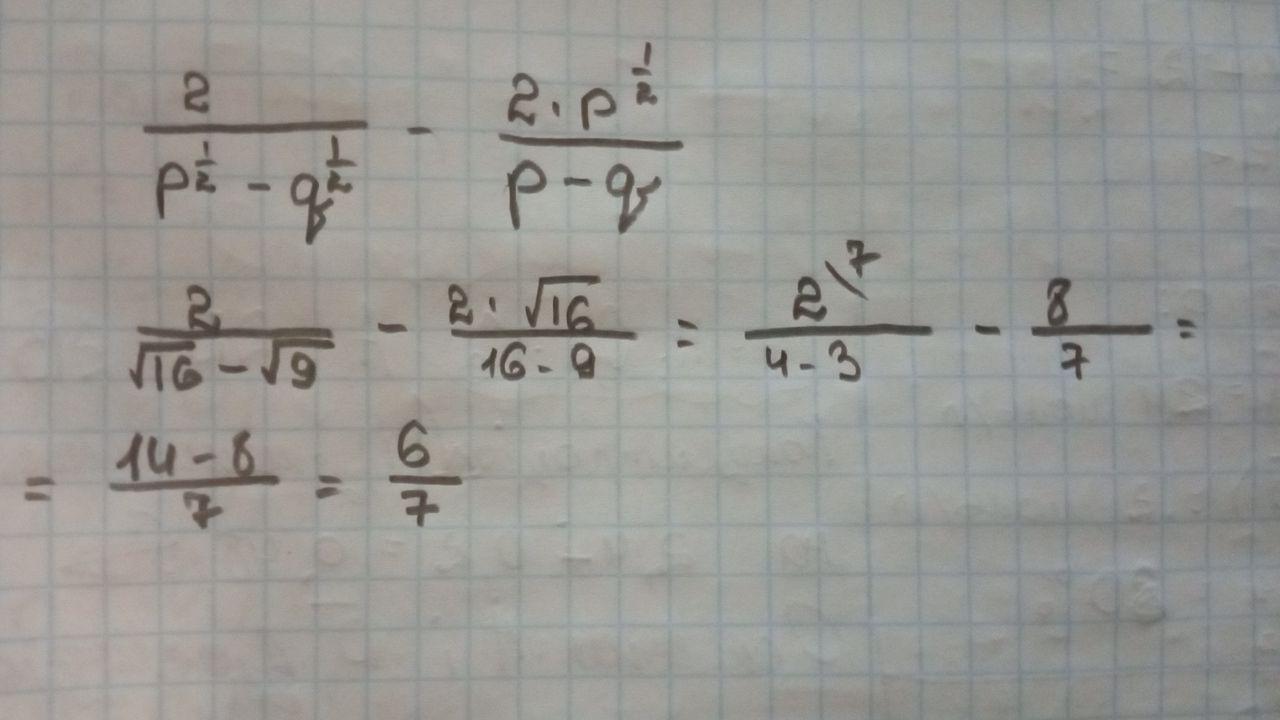 \frac{2}{p^{\frac{1}{2}} - q^{\frac{1}{2}}} - \frac{2 \cdot p^{\frac{1}{2}}}{p - q}
\frac{2}{\sqrt{16} - \sqrt{9}} - \frac{2 \cdot \sqrt{16}}{16 - 9} = \frac{2^{\backslash 7}}{4 - 3} - \frac{8}{7} =
= \frac{14 - 8}{7} = \frac{6}{7}